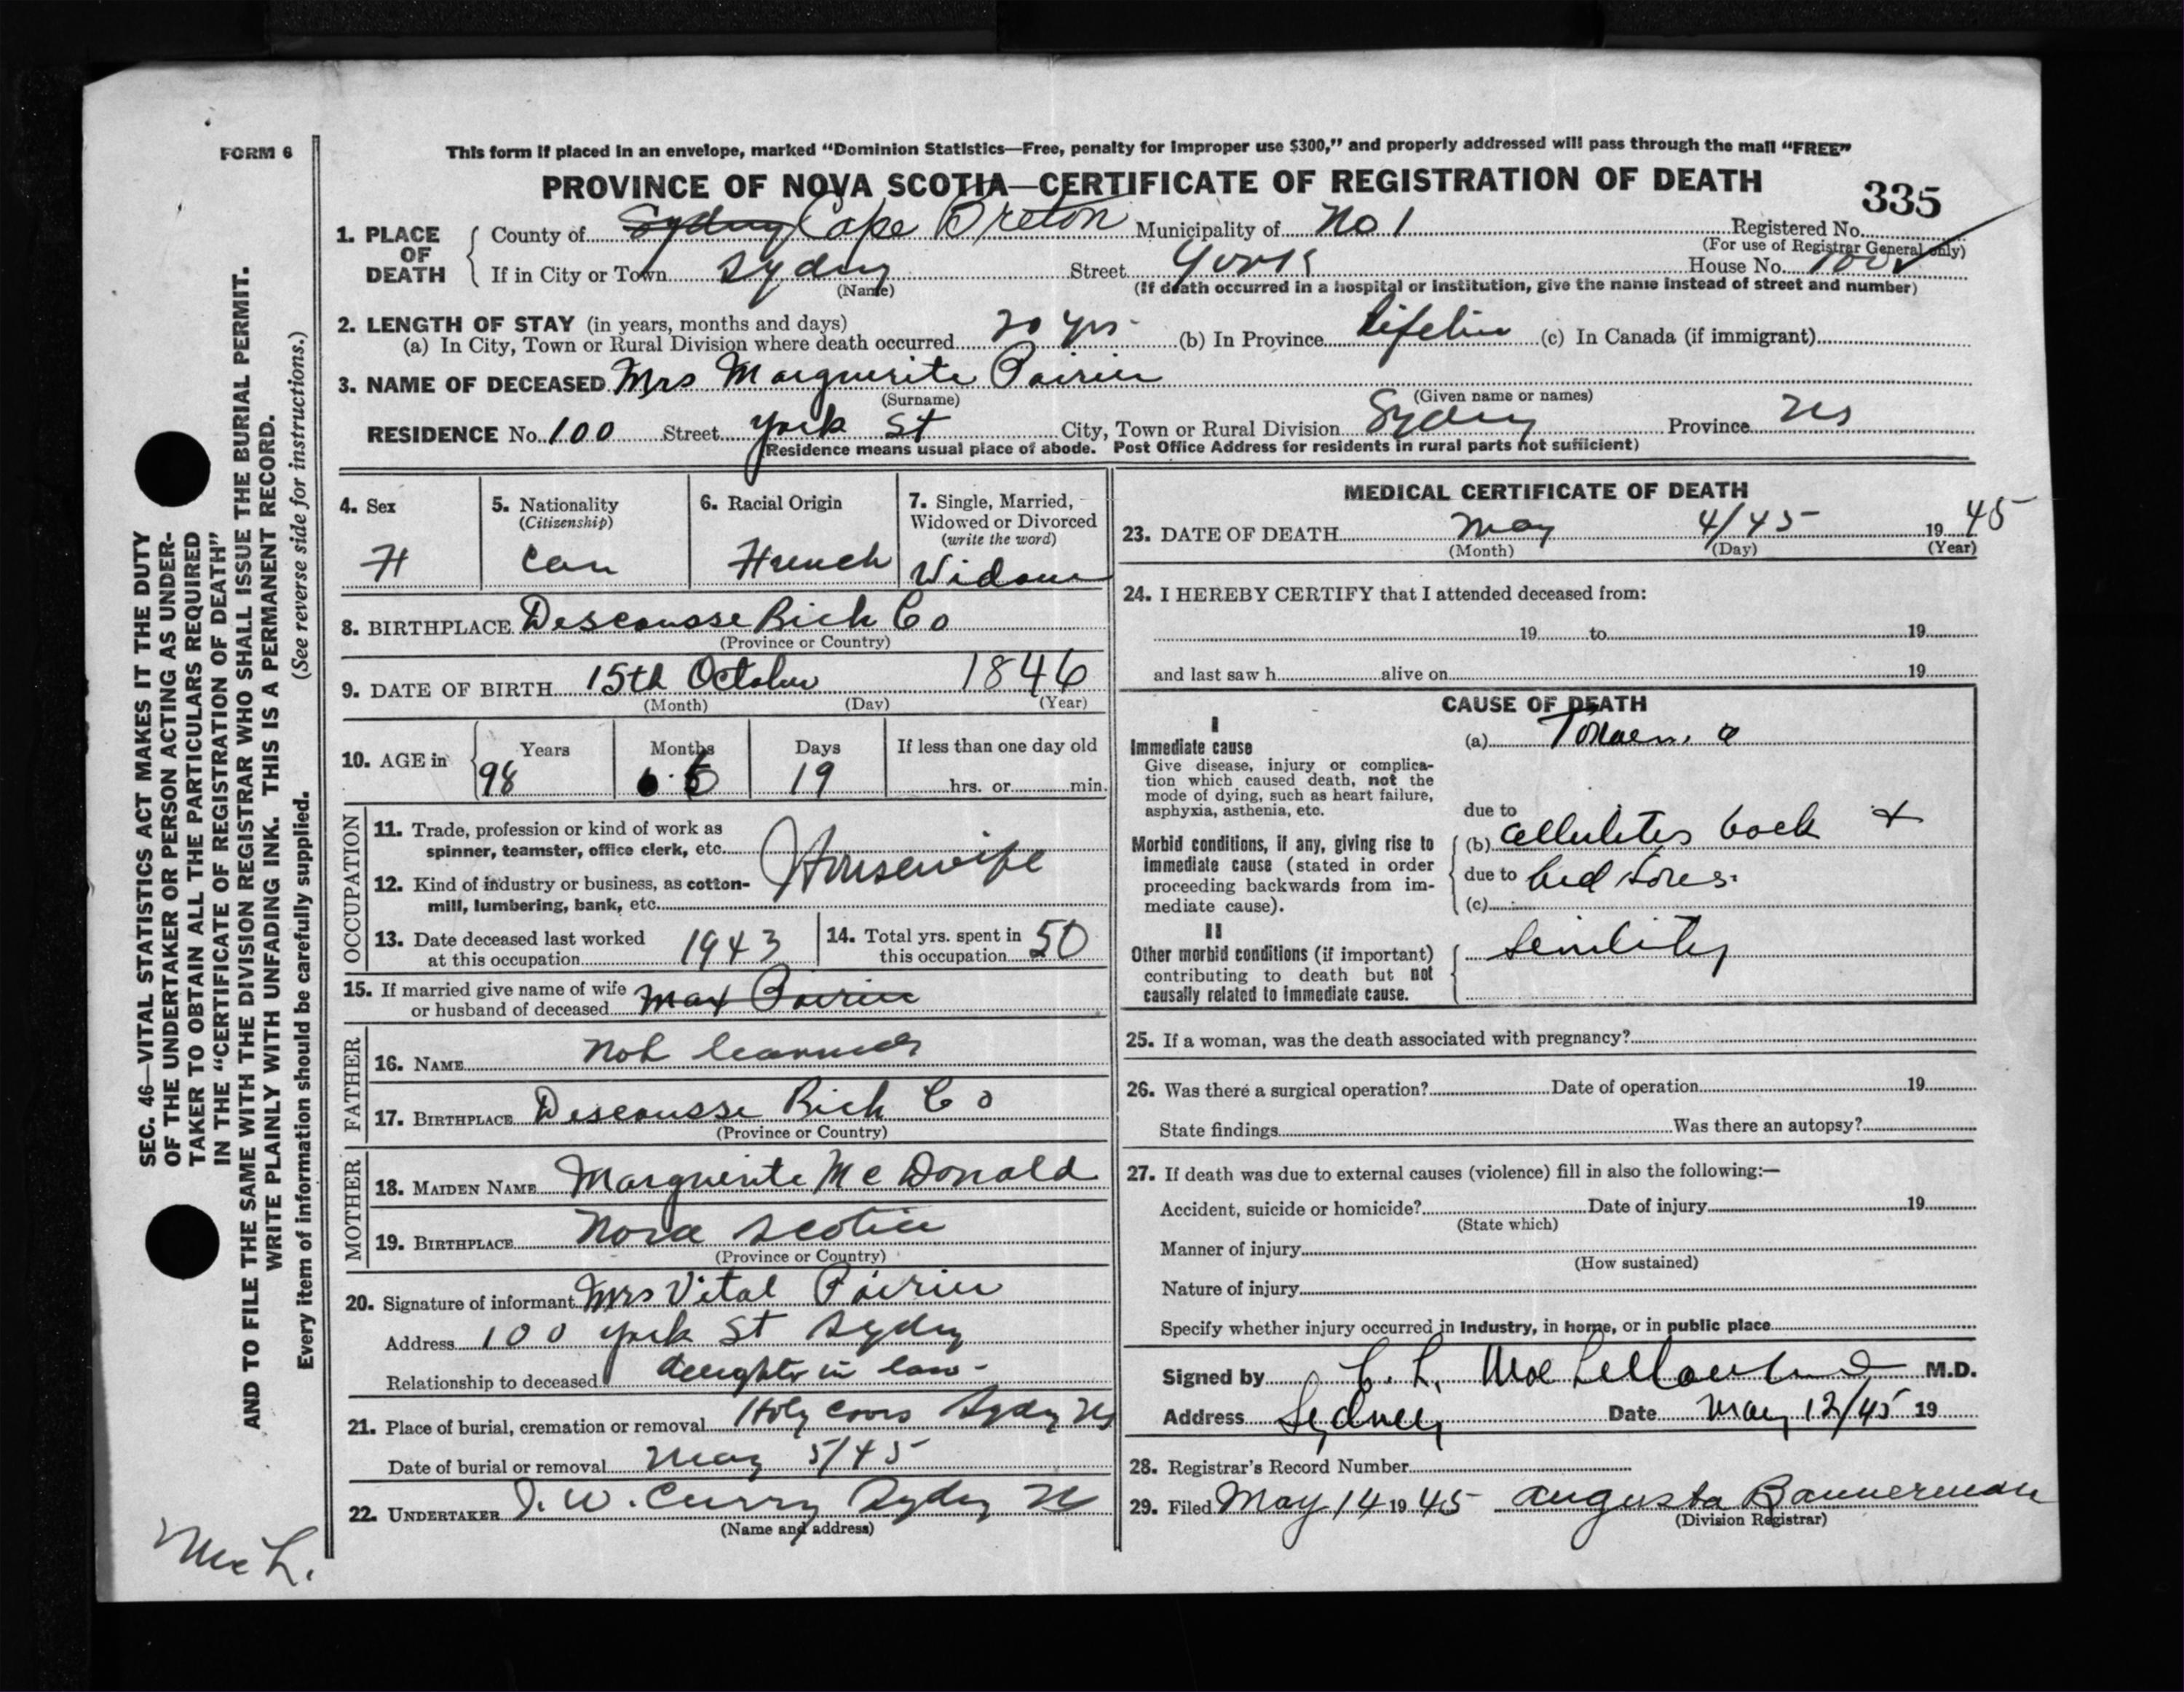 FORM 6
This form if placed in an envelope, marked “Dominion Statistics—Free, penalty for improper use $300,” and properly addressed will pass through the mail “FREE”
PROVINCE OF NOVA SCOTIA—CERTIFICATE OF REGISTRATION OF DEATH
335
1. PLACE OF DEATH
County of Sydney Cape Breton Municipality of No 1 Registered No.
(For use of Registrar General only)
If in City or Town Sydney Street York House No. 100
(Name)
(If death occurred in a hospital or institution, give the name instead of street and number)
2. LENGTH OF STAY (in years, months and days)
(a) In City, Town or Rural Division where death occurred 20 yrs. (b) In Province (c) In Canada (if immigrant)
3. NAME OF DECEASED Mrs Marguerite Poirier
(Surname) (Given name or names)
RESIDENCE No. 100 Street York St City, Town or Rural Division Sydney Province NS
(Residence means usual place of abode. Post Office Address for residents in rural parts not sufficient)
4. Sex
F
5. Nationality
(Citizenship)
Can
6. Racial Origin
French
7. Single, Married,
Widowed or Divorced
(write the word)
Widow
8. BIRTHPLACE Descousse Rich Co
(Province or Country)
9. DATE OF BIRTH 15th October 1846
(Month) (Day) (Year)
10. AGE in
Years Months Days If less than one day old
98 6 19 hrs. or min.
OCCUPATION
11. Trade, profession or kind of work as
spinner, teamster, office clerk, etc.
Housewife
12. Kind of industry or business, as cotton-
mill, lumbering, bank, etc.
13. Date deceased last worked
at this occupation 1943
14. Total yrs. spent in
this occupation 50
15. If married give name of wife
or husband of deceased Max Poirier
FATHER
16. NAME Not
17. BIRTHPLACE Descousse Rich Co
(Province or Country)
MOTHER
18. MAIDEN NAME Marguerite McDonald
19. BIRTHPLACE Nova Scotia
(Province or Country)
20. Signature of informant Mrs Vital Poirier
Address 100 York St Sydney
Relationship to deceased daughter in law -
21. Place of burial, cremation or removal Holy Cross Sydney NS
Date of burial or removal May 5/45
22. UNDERTAKER J. W. Curry Sydney NS
(Name and address)
MEDICAL CERTIFICATE OF DEATH
23. DATE OF DEATH May 4/45 1945
(Month) (Day) (Year)
24. I HEREBY CERTIFY that I attended deceased from:
19 to 19
and last saw h alive on 19
CAUSE OF DEATH
I
Immediate cause
Give disease, injury or complica-
tion which caused death, not the
mode of dying, such as heart failure,
asphyxia, asthenia, etc.
(a)
due to
Morbid conditions, if any, giving rise to
immediate cause (stated in order
proceeding backwards from im-
mediate cause).
(b) cellulites back +
due to bed sores.
(c)
II
Other morbid conditions (if important)
contributing to death but not
causally related to immediate cause.
Senility
25. If a woman, was the death associated with pregnancy?
26. Was there a surgical operation? Date of operation 19
State findings Was there an autopsy?
27. If death was due to external causes (violence) fill in also the following:—
Accident, suicide or homicide? Date of injury 19
(State which)
Manner of injury
(How sustained)
Nature of injury
Specify whether injury occurred in industry, in home, or in public place
Signed by C. L. M.D.
Address Sydney Date May 12/45 19
28. Registrar's Record Number
29. Filed May 14 1945 Augusta Bannerman
(Division Registrar)
SEC. 46—VITAL STATISTICS ACT MAKES IT THE DUTY
OF THE UNDERTAKER OR PERSON ACTING AS UNDER-
TAKER TO OBTAIN ALL THE PARTICULARS REQUIRED
IN THE “CERTIFICATE OF REGISTRATION OF DEATH”
AND TO FILE THE SAME WITH THE DIVISION REGISTRAR WHO SHALL ISSUE THE BURIAL PERMIT.
WRITE PLAINLY WITH UNFADING INK. THIS IS A PERMANENT RECORD.
Every item of information should be carefully supplied. (See reverse side for instructions.)
McL.